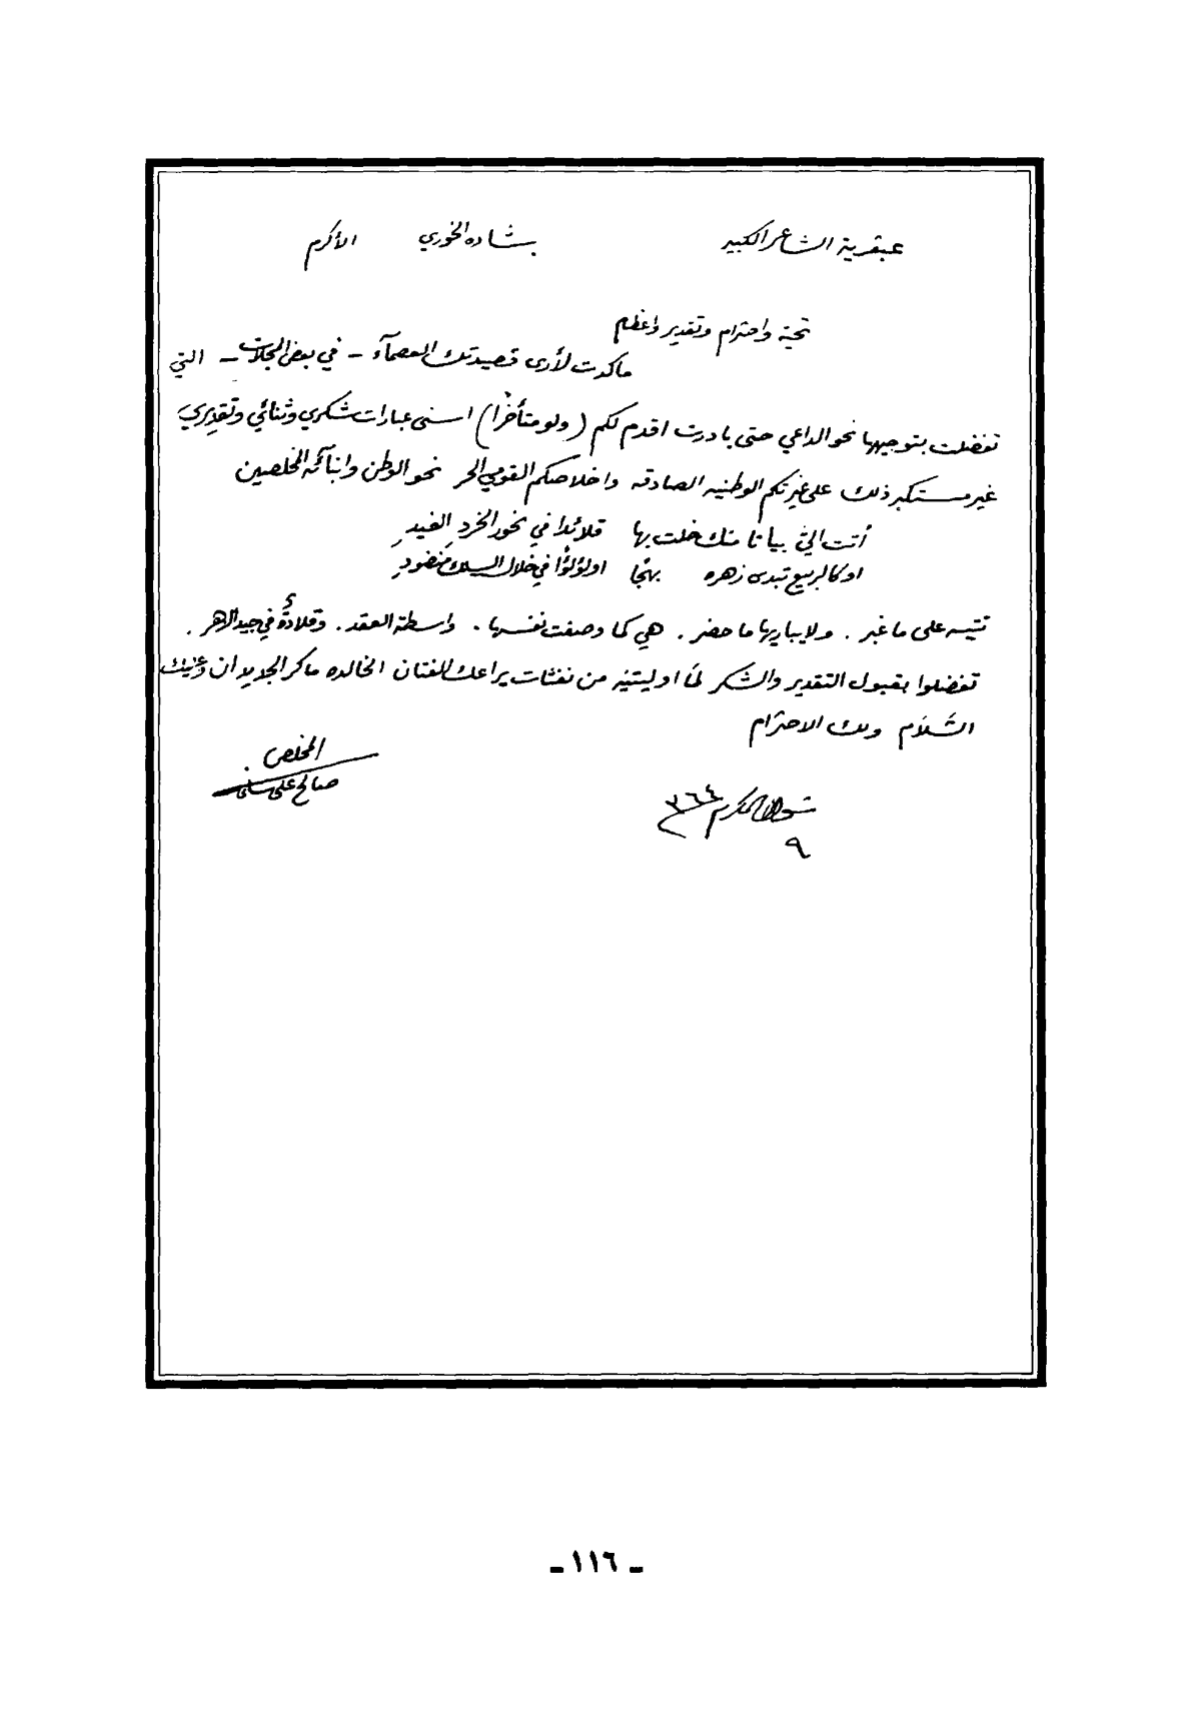 عبقرية الشاعر الكبير بشاره الخوري الأكرم
تحية واحترام وتقدير واعظام
ماكدت لأرى قصيدتك العصمآء - في بعض المجلات - التي
تفضلت بتوجيهها نحو الداعي حتى بادرت اقدم لكم (ولو متأخرًا) اسنى عبارات شكري وثنائي وتقديري
غير مستكبر ذلك على غيرتكم الوطنيه الصادقه واخلاصكم القومي الحر نحو الوطن وابنآئه المخلصين
أتت اليّ بيانا منك خلت بها قلائدا في نحور الخردِ الغيدِ
او كالربيع تبدى زهره بهجًا اولؤلؤًا في خلال السلك منضودِ
تتيه على ما غبر . ولا يباريها ما حضر . هي كما وصفت نفسها . واسطة العقد . وقلادةٌ في جيد الدهر .
تفضلوا بقبول التقدير والشكر لما اوليتنيه من نفثات يراعك الفتان الخالده ماكر الجديدان وعليك
السَّلام ولك الاحترام
المخلص .
صالح علي
شوال المكرم ٣٦٤
٩
- ١١٦ -